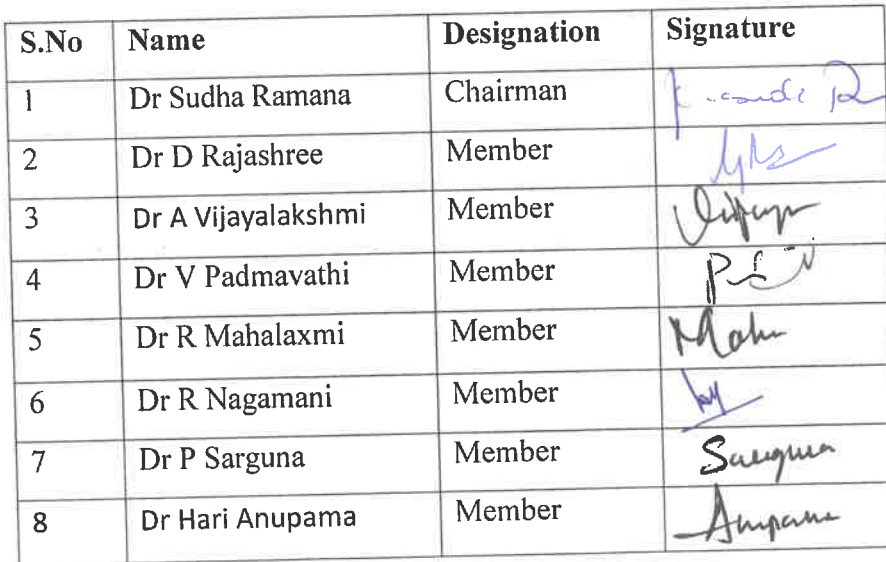 S.No Name Designation Signature
1 Dr Sudha Ramana Chairman
2 Dr D Rajashree Member
3 Dr A Vijayalakshmi Member
4 Dr V Padmavathi Member
5 Dr R Mahalaxmi Member
6 Dr R Nagamani Member
7 Dr P Sarguna Member Sarguna
8 Dr Hari Anupama Member Anupama